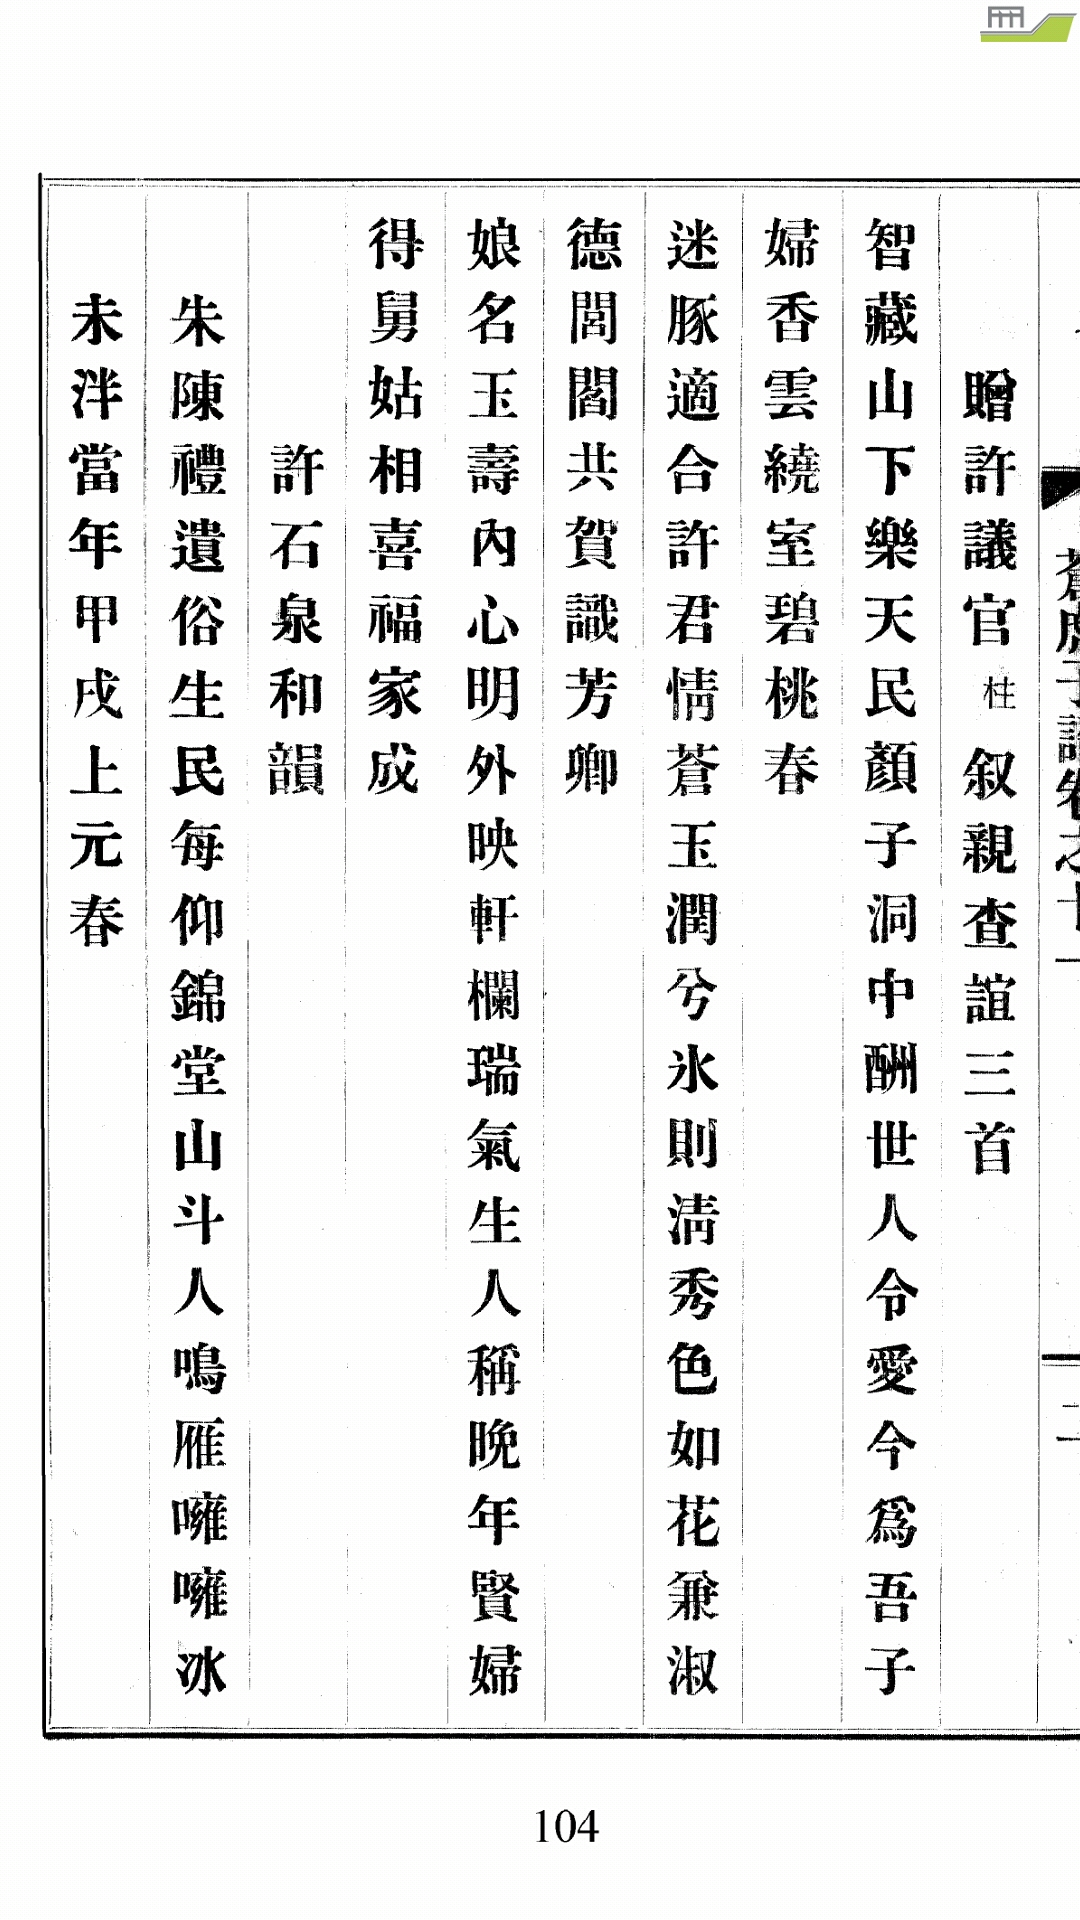 贈許議官 柱 叙親査誼三首
智藏山下樂天民顏子洞中酬世人令愛今爲吾子
婦香雲繞室碧桃春
迷豚適合許君情蒼玉潤兮氷則淸秀色如花兼淑
德閭閻共賀識芳卿
娘名玉壽內心明外映軒欄瑞氣生人稱晚年賢婦
得舅姑相喜福家成
許石泉和韻
朱陳禮遺俗生民每仰錦堂山斗人鳴雁嗈嗈冰
未泮當年甲戌上元春
104